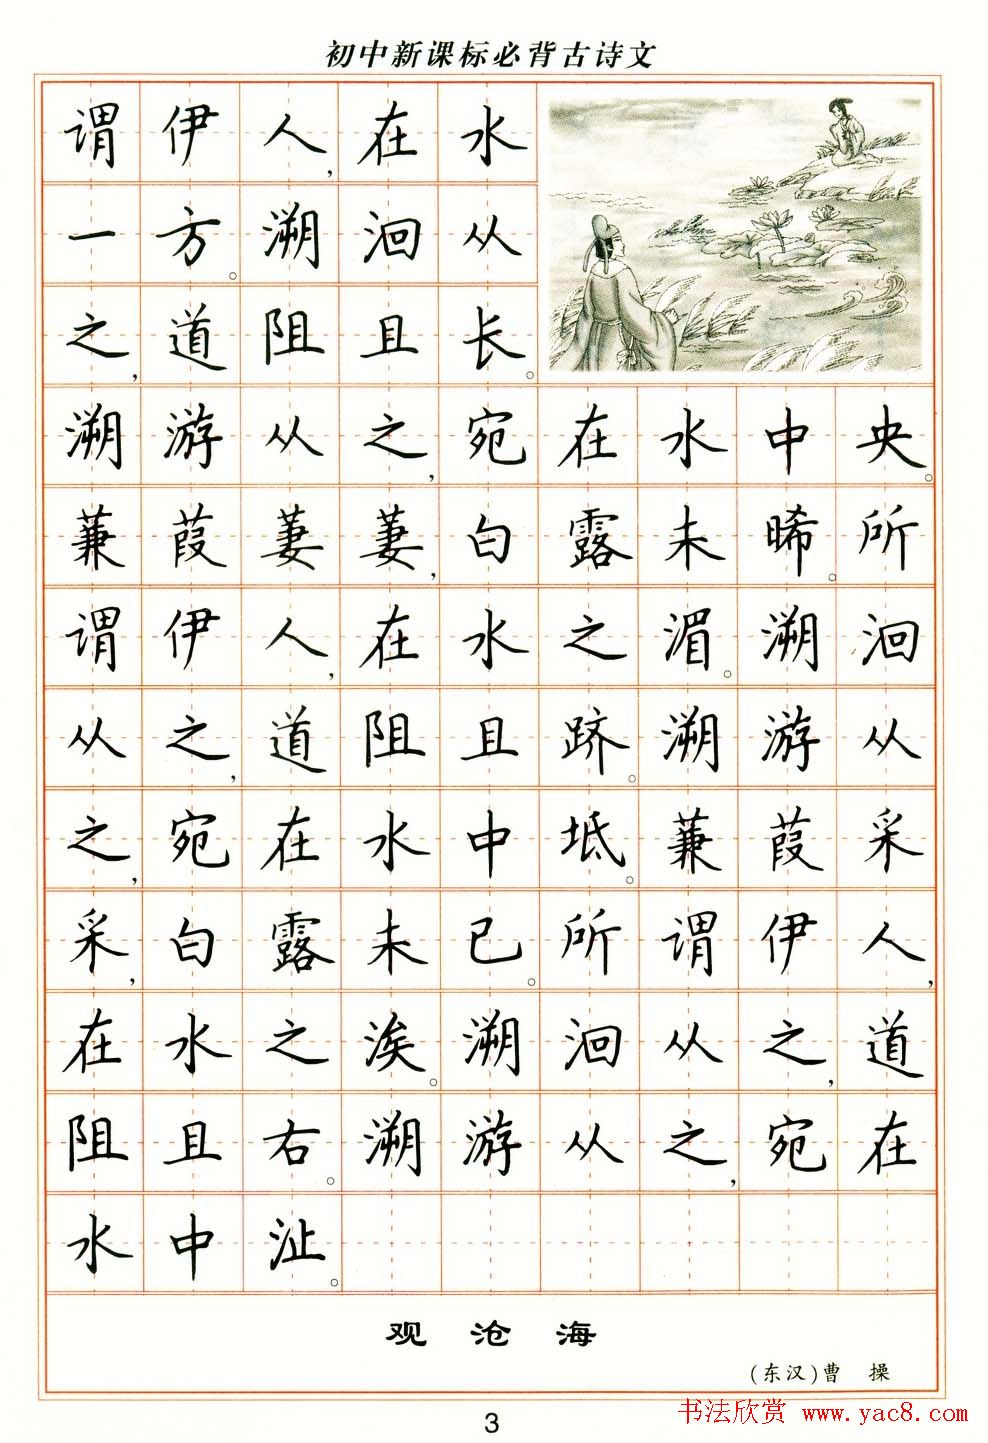 初中新课标必背古诗文
谓伊人,在水
一方。溯洄从
之,道阻且长。
溯游从之,宛在水中央。
蒹葭萋萋,白露未晞。所
谓伊人,在水之湄。溯洄
从之,道阻且跻。溯游从
之,宛在水中坻。蒹葭采
采,白露未已。所谓伊人,
在水之涘。溯洄从之,道
阻且右。溯游从之,宛在
水中沚。
观沧海
(东汉)曹 操
3
书法欣赏 www.yac8.com